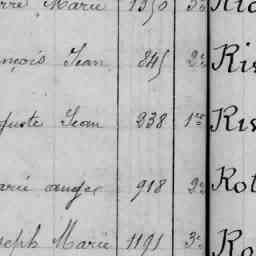 rre Marie 1350 3e Rid
nçois Jean 845 2e Ris
guste Jean 238 1re Ris
arie ange 918 2e Rob
seph Marie 1191 3e Ro